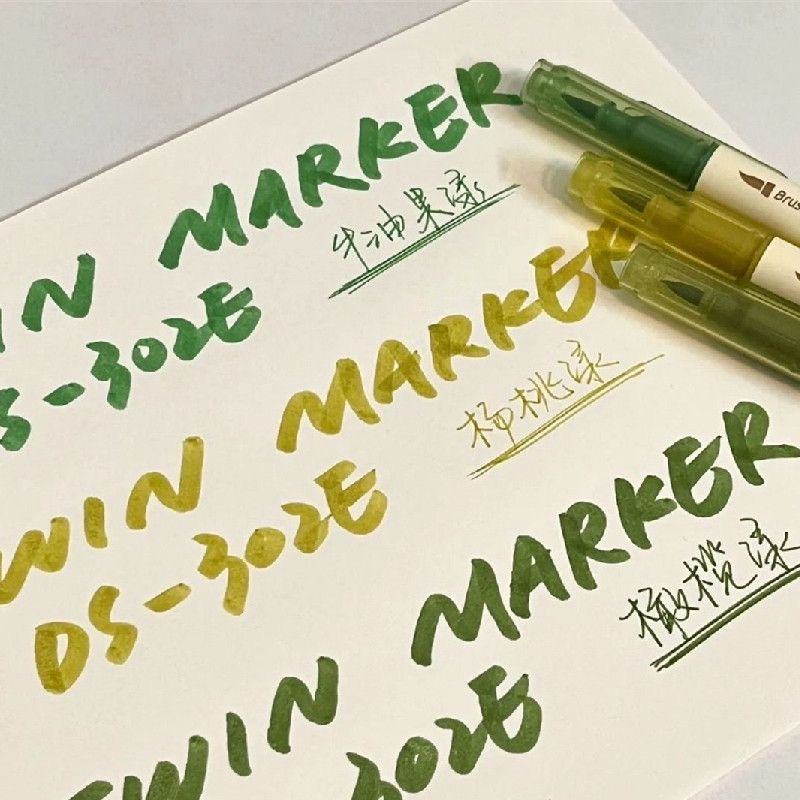 IN MARKER
S-302E
牛油果漾
WIN MARKER
DS-302E
杨桃漾
TWIN MARKER
302E
橄榄漾
Brus